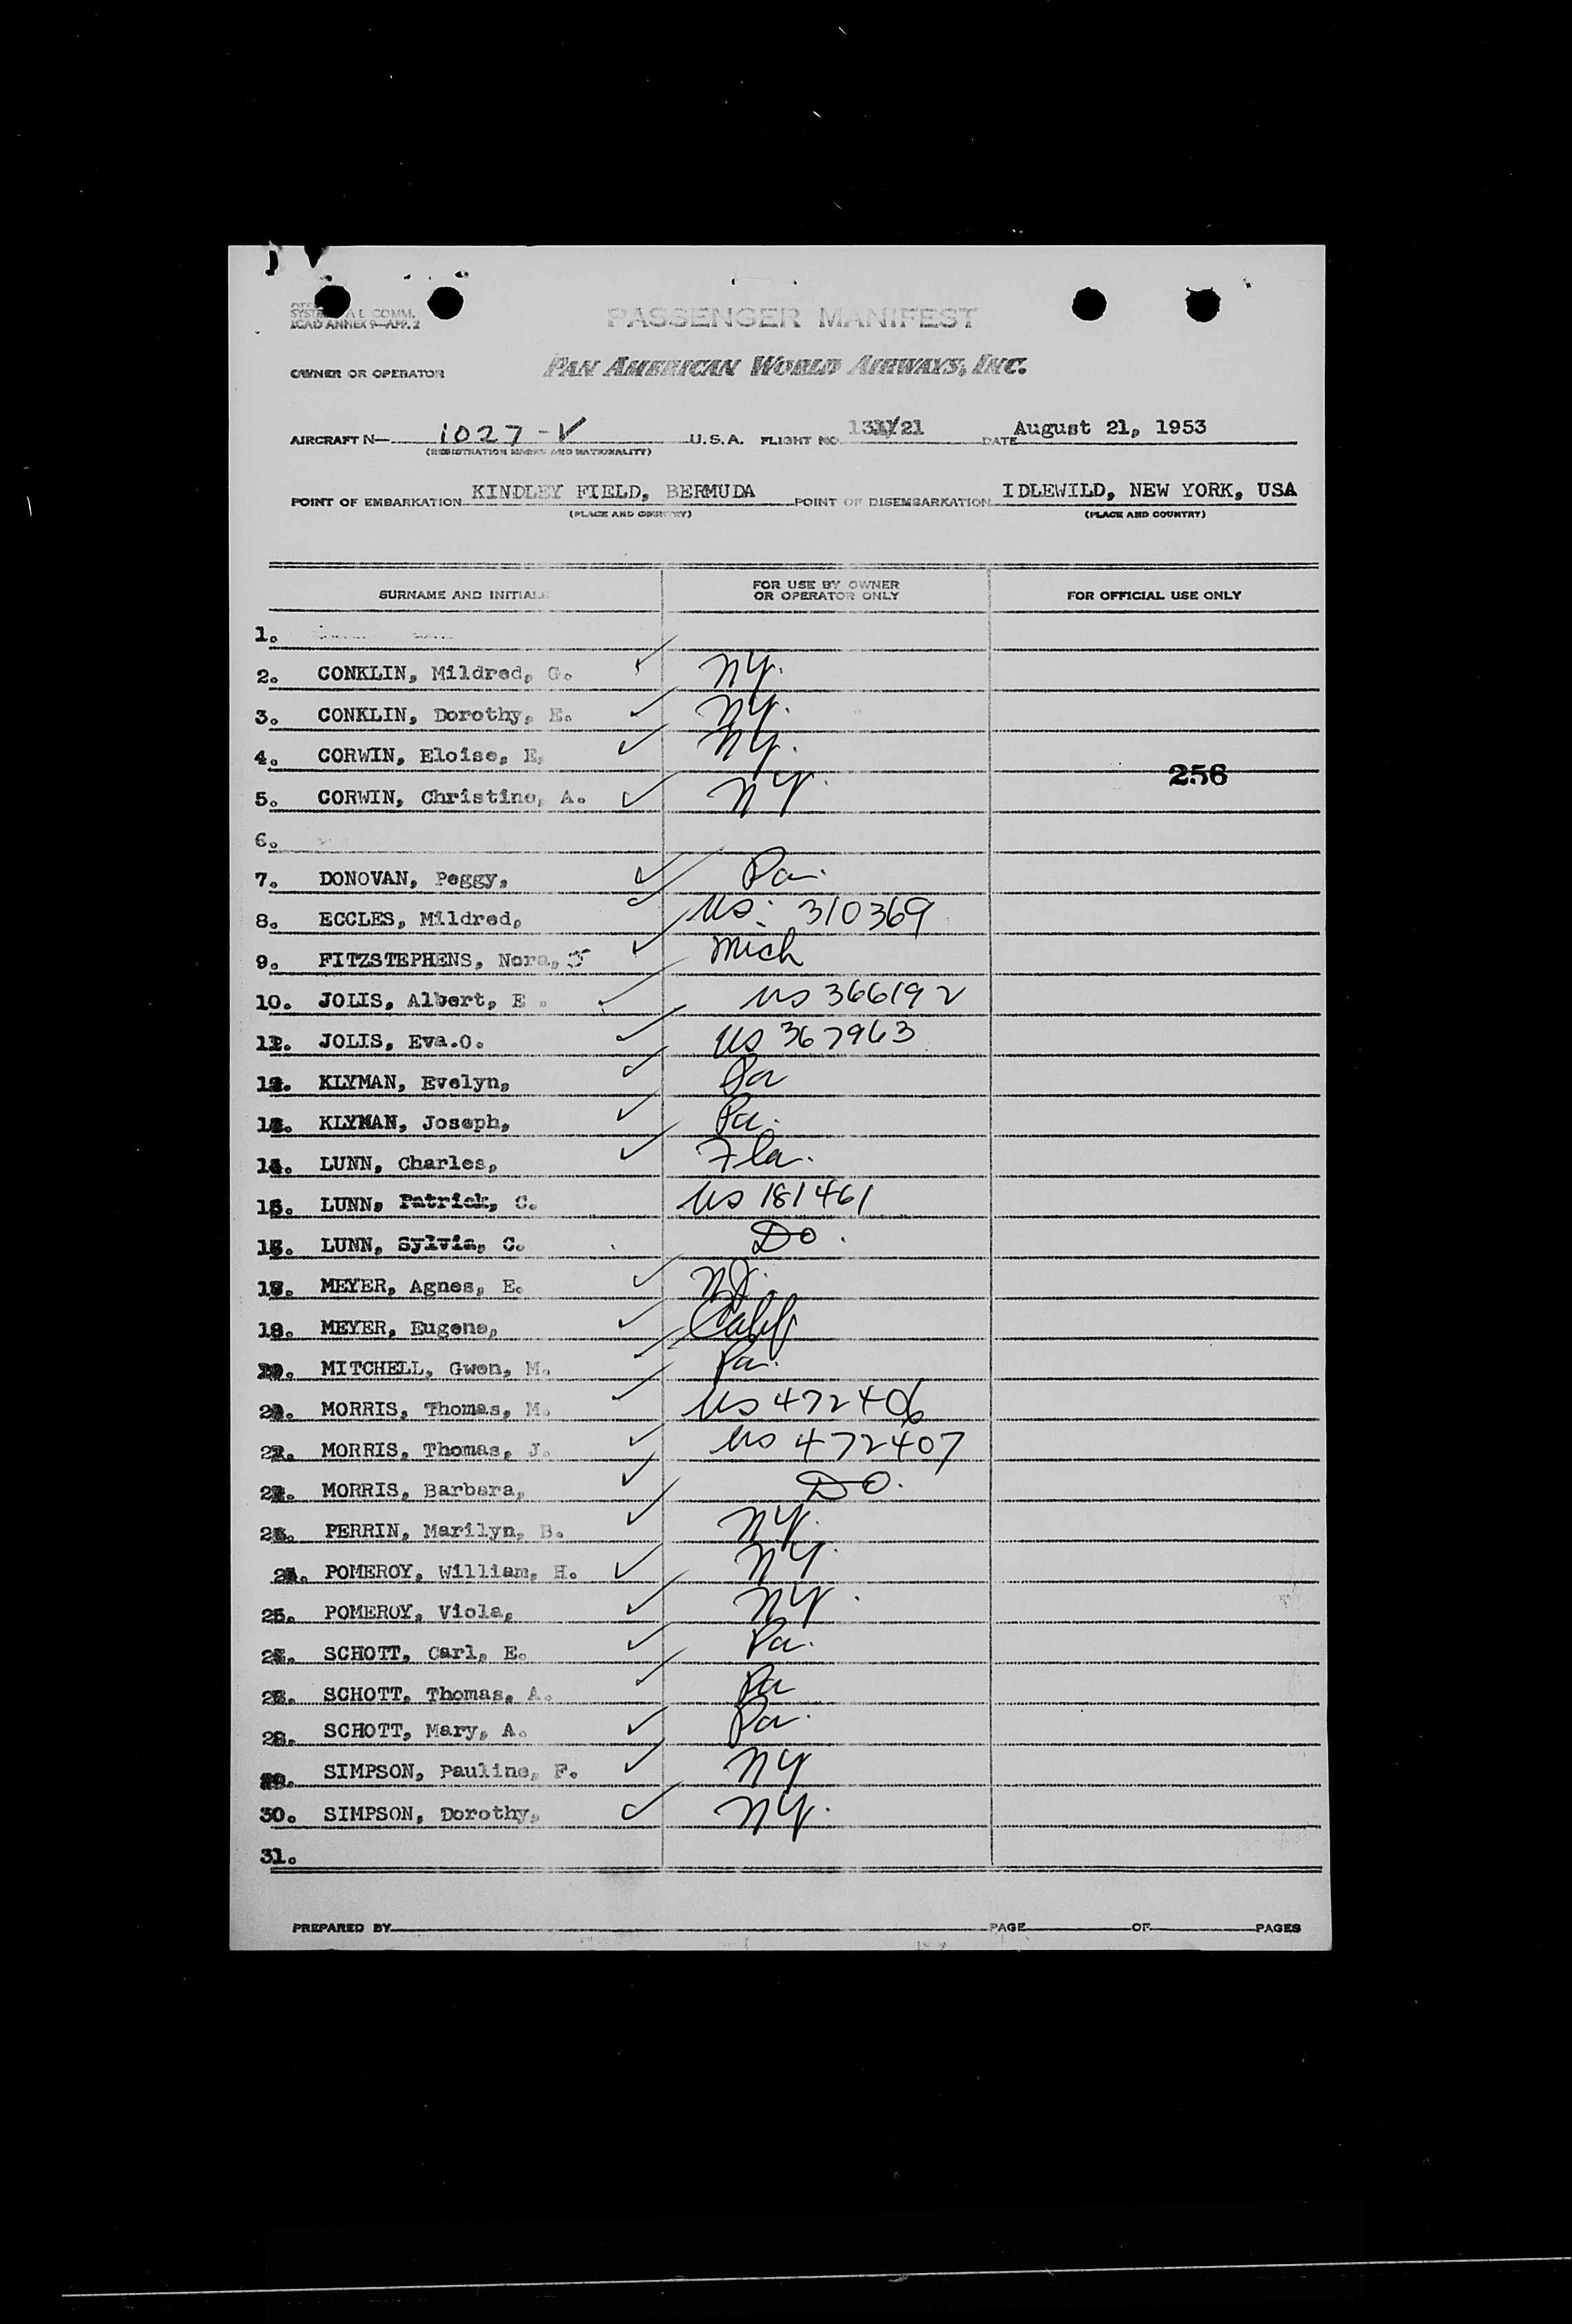 SYSTE A L COMM.
ICAO ANNEX 9—APP. 2
PASSENGER MANIFEST
OWNER OR OPERATOR PAN AMERICAN WORLD AIRWAYS, INC.
AIRCRAFT N— 1027-V U.S.A. FLIGHT NO. /21 DATE August 21, 1953
(REGISTRATION MARKS AND NATIONALITY)
POINT OF EMBARKATION KINDLEY FIELD, BERMUDA POINT OF DISEMBARKATION IDLEWILD, NEW YORK, USA
(PLACE AND COUNTRY) (PLACE AND COUNTRY)
SURNAME AND INITIALS FOR USE BY OWNER OR OPERATOR ONLY FOR OFFICIAL USE ONLY
1.
2. CONKLIN, Mildred, G. ✓ NY.
3. CONKLIN, Dorothy, E. ✓ NY.
4. CORWIN, Eloise, E. ✓ NY.
256
5. CORWIN, Christine, A. ✓ NY.
6.
7. DONOVAN, Peggy, ✓ Pa.
8. ECCLES, Mildred, ✓ US: 310369
9. FITZSTEPHENS, Nora, J ✓ Mich
10. JOLIS, Albert, E. ✓ US 366192
11. JOLIS, Eva.O. ✓ US 367963
12. KLYMAN, Evelyn, ✓ Pa
13. KLYMAN, Joseph, ✓ Pa.
14. LUNN, Charles, ✓ Fla.
15. LUNN, Patrick, C. US 181461
16. LUNN, Sylvia, C. Do.
17. MEYER, Agnes, E. ✓ NJ.
18. MEYER, Eugene, ✓ Calif
19. MITCHELL, Gwen, M. ✓ Pa.
20. MORRIS, Thomas, M. ✓ US 472406
21. MORRIS, Thomas, J. ✓ US 472407
22. MORRIS, Barbara, ✓ DO.
23. PERRIN, Marilyn, B. ✓ NY.
24. POMEROY, William, H. ✓ NY.
25. POMEROY, Viola, ✓ NY.
26. SCHOTT, Carl, E. ✓ Pa.
27. SCHOTT, Thomas, A. ✓ Pa
28. SCHOTT, Mary, A. ✓ Pa.
29. SIMPSON, Pauline, F. ✓ NY
30. SIMPSON, Dorothy, ✓ NY.
31.
PREPARED BY PAGE OF PAGES